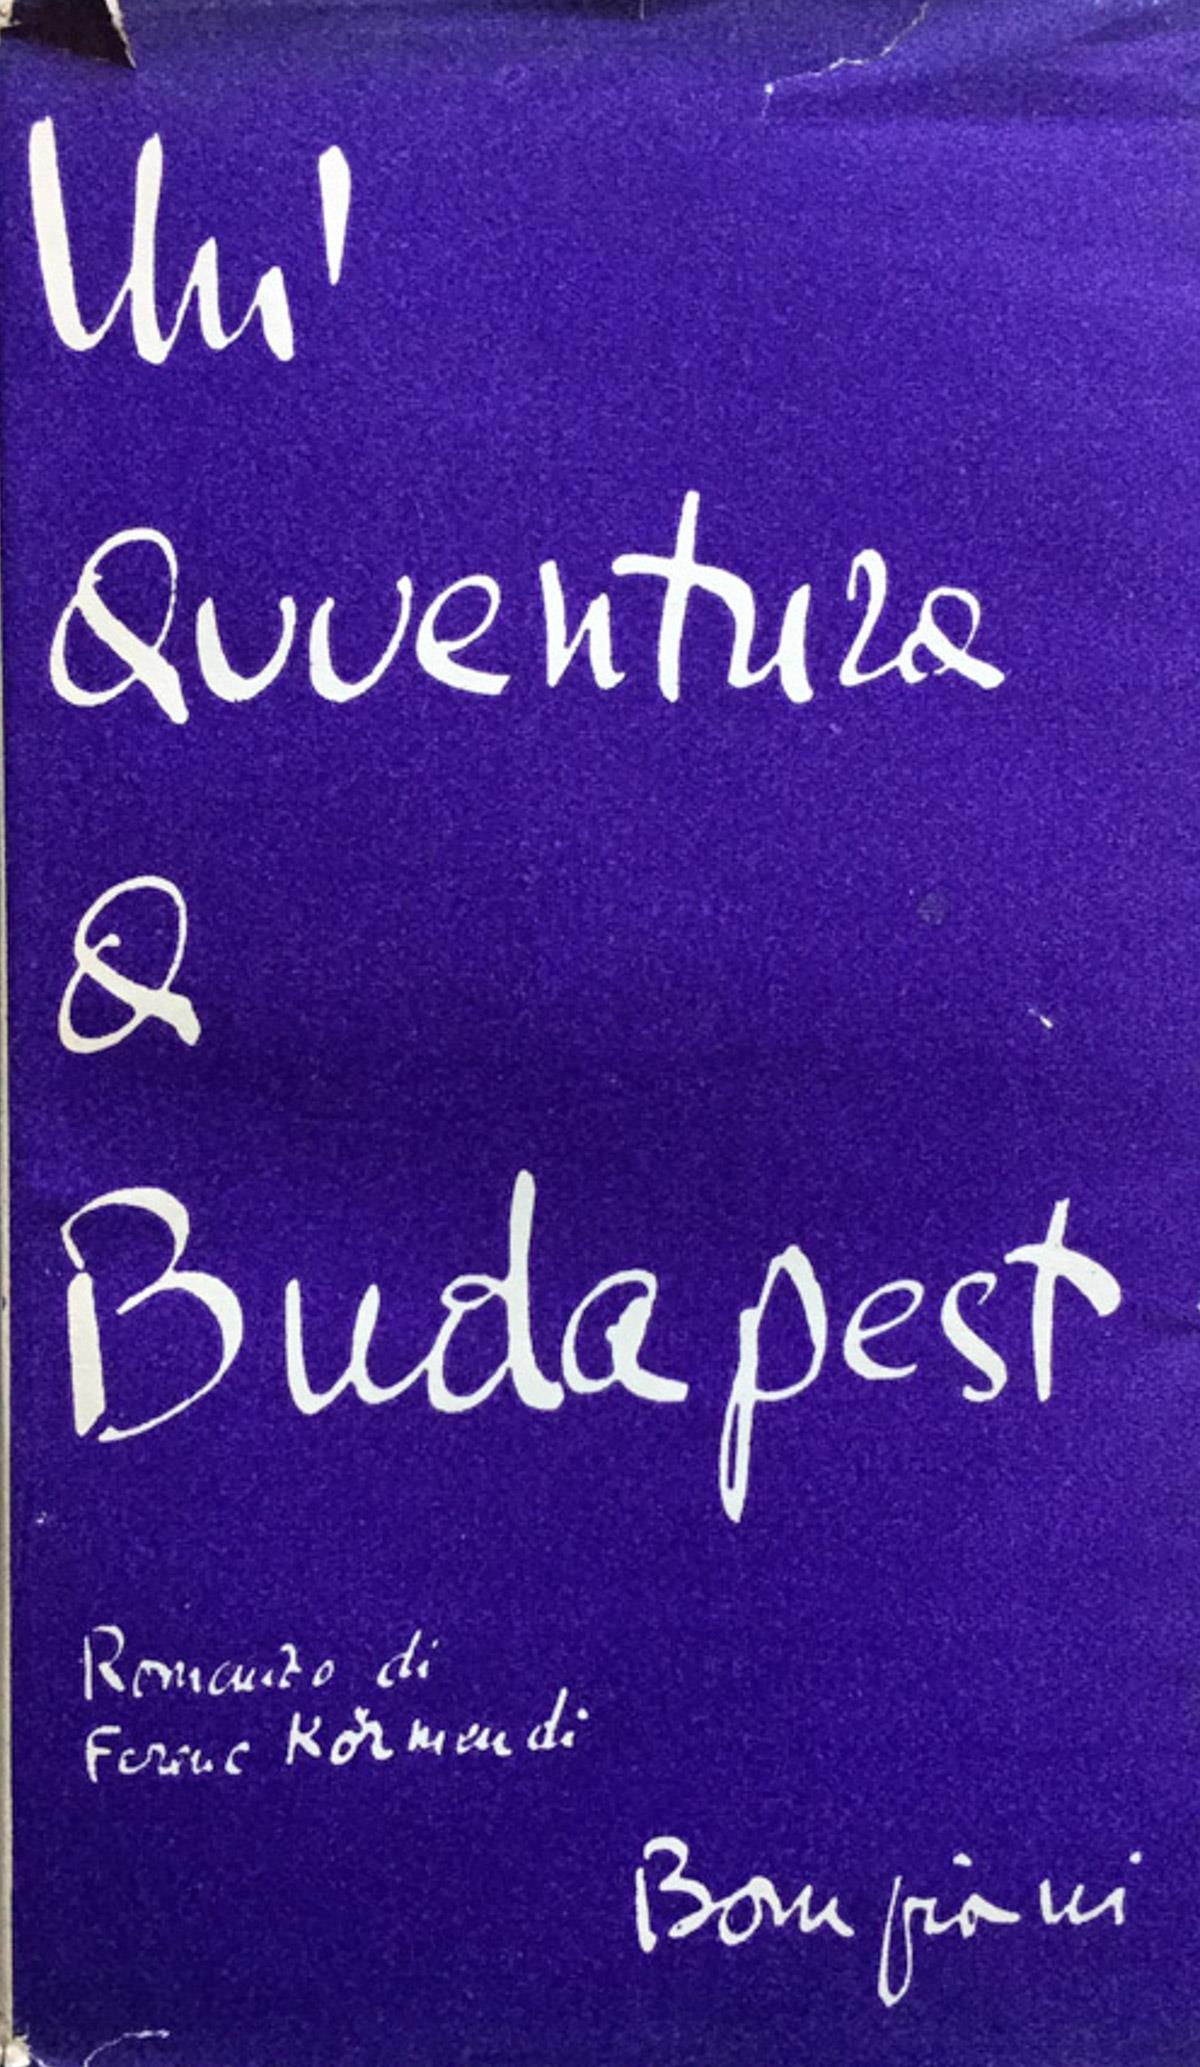 Un'
avventura
a
Budapest
Romanzo di
Ferenc Körmendi
Bompiani